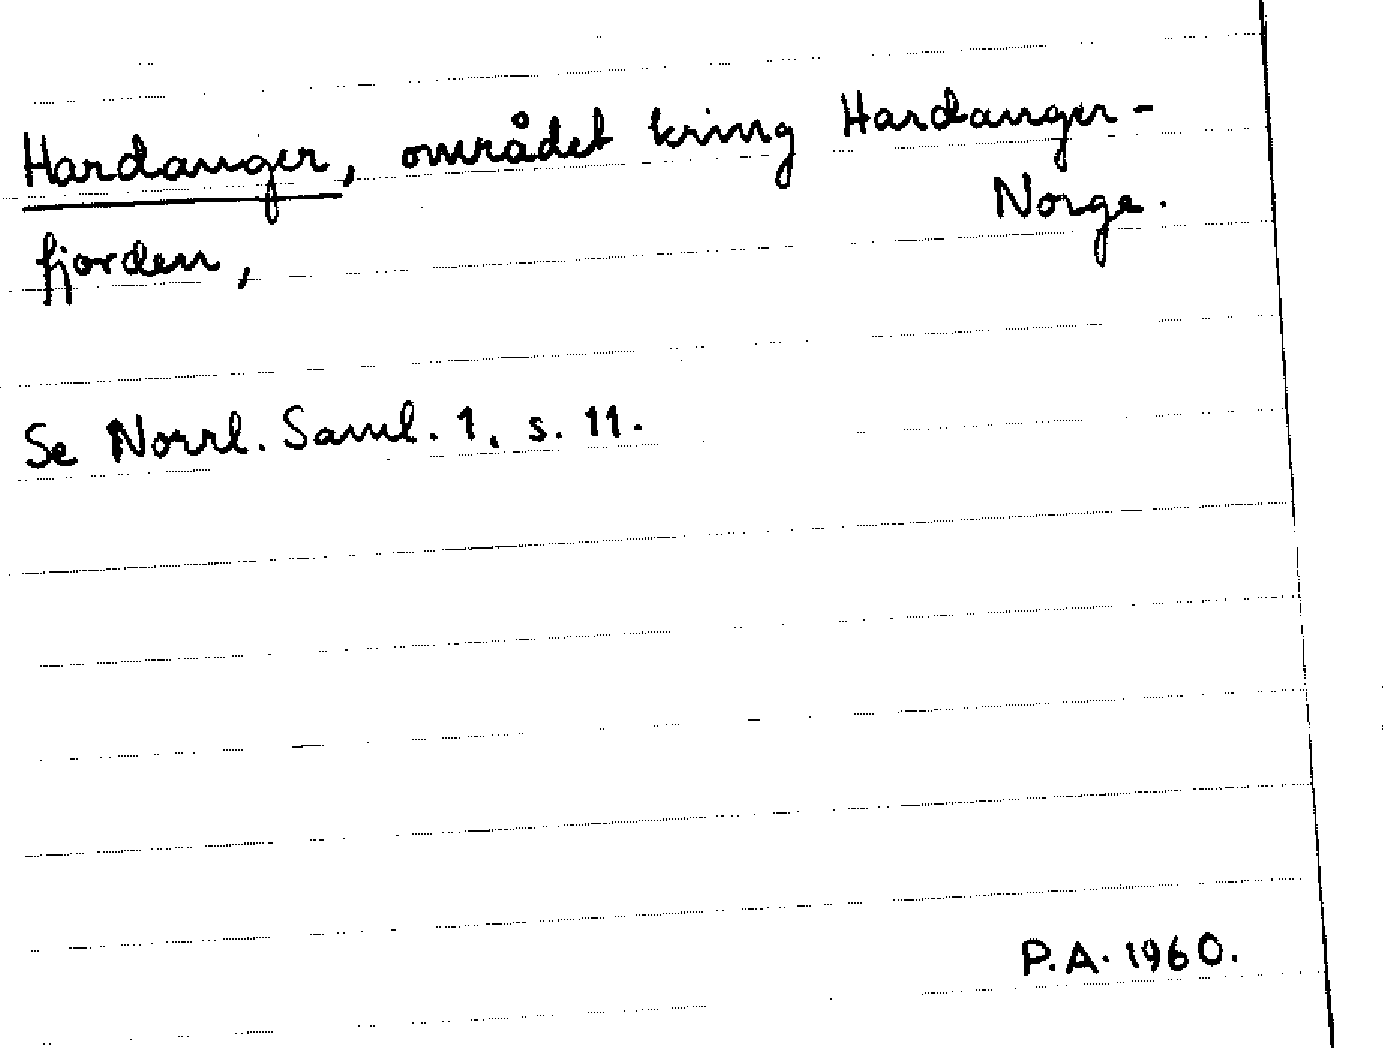 Hardanger, området kring Hardanger-
fjorden, Norge.
Se Norrl. Saml. 1, s. 11.
P.A. 1960.